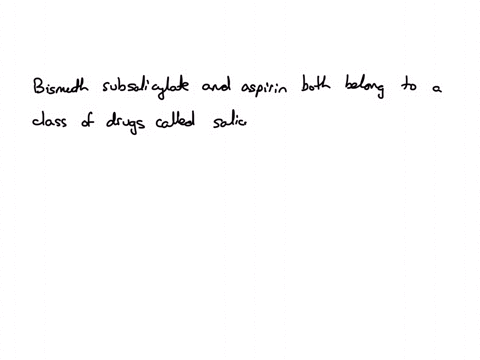 Bismuth subsalicylate and aspirin both belong to a
class of drugs called salic